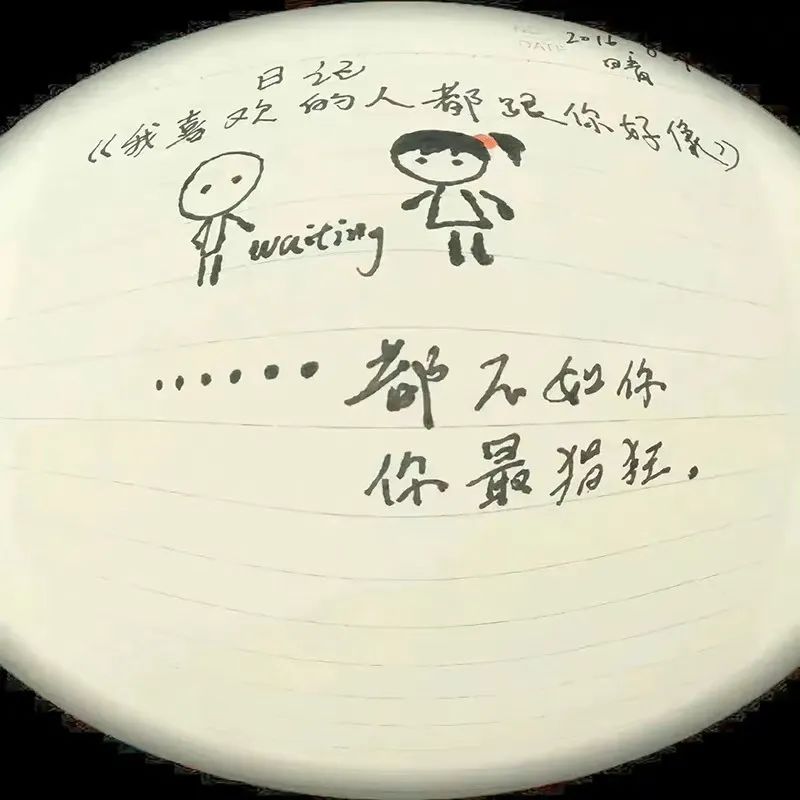 DATE 2016.8.
晴
日记
《我喜欢的人都跟你好像》
waiting
......都不如你
你最猖狂.